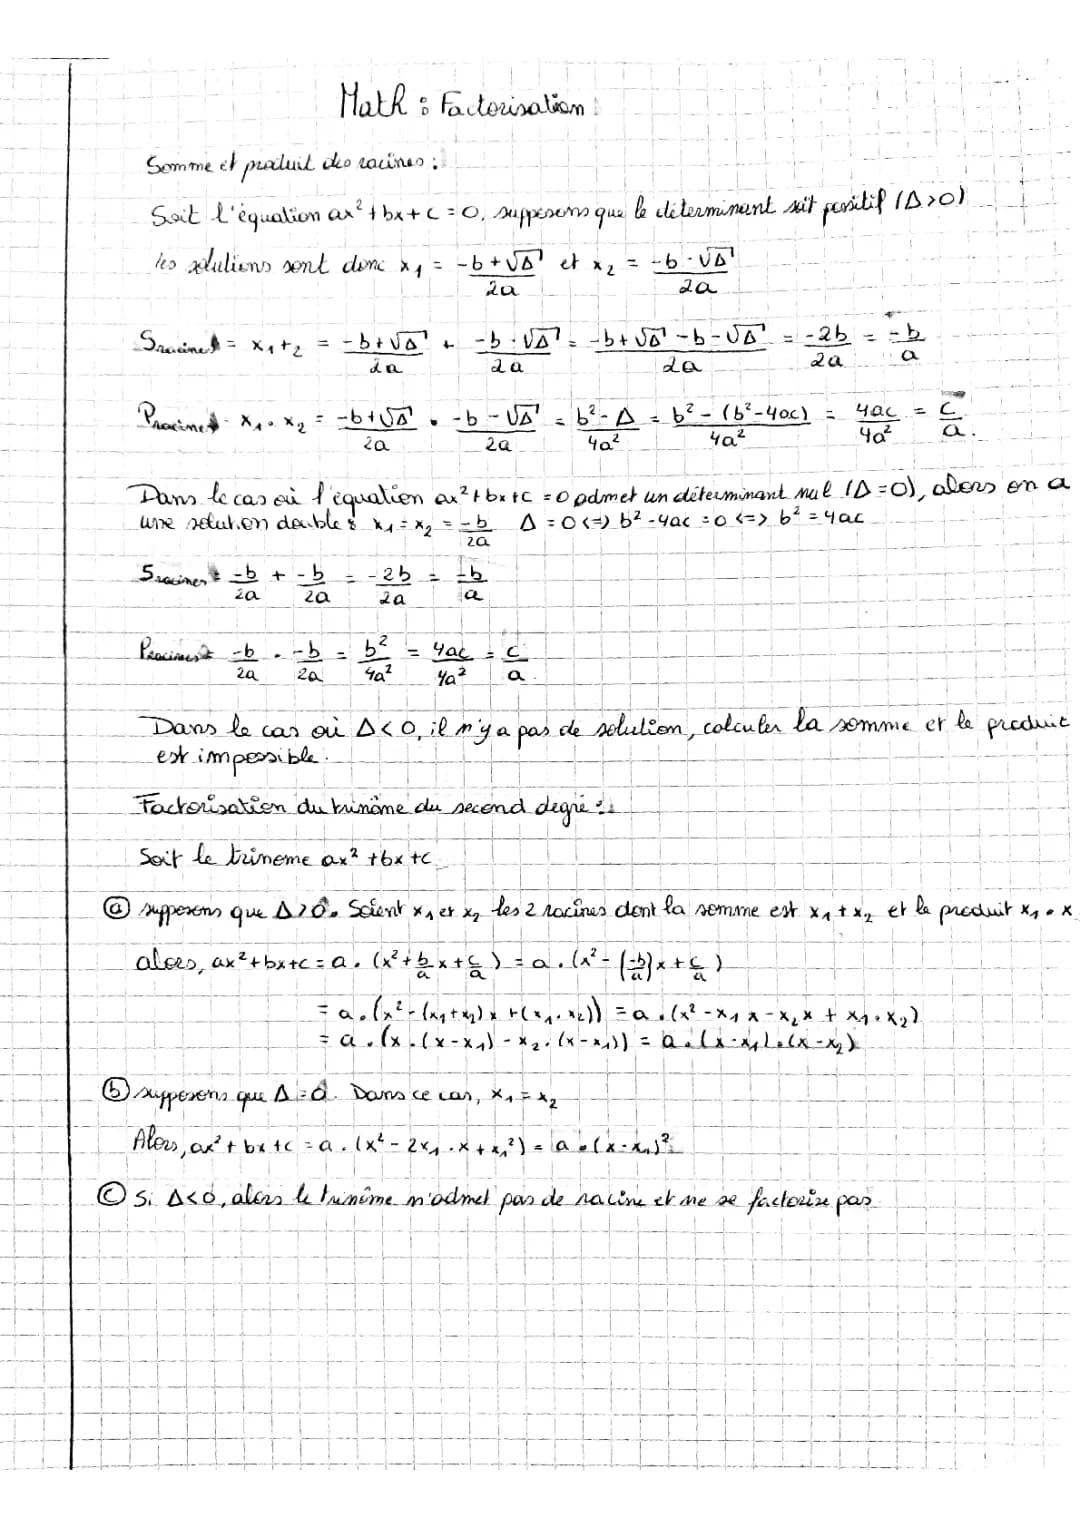 Math : Factorisation :
Somme et produit des racines :
Soit l'équation ax² + bx + c = 0, supposons que le déterminant soit positif (Δ>0)
les solutions sont donc x₁ = (-b+√Δ)/2a et x₂ = (-b-√Δ)/2a
Sracines = x₁+₂ = (-b+√Δ)/2a + (-b-√Δ)/2a = (-b+√Δ-b-√Δ)/2a = -2b/2a = -b/a
Pracines = x₁ • x₂ = (-b+√Δ)/2a • (-b-√Δ)/2a = (b²-Δ)/4a² = (b²-(b²-4ac))/4a² = 4ac/4a² = c/a.
Dans le cas où l'équation ax²+bx+c = 0 admet un déterminant nul (Δ=0), alors on a
une solution double : x₁ = x₂ = -b/2a Δ = 0 <=> b²-4ac = 0 <=> b² = 4ac
Sracines = -b/2a + -b/2a = -2b/2a = -b/a
Pracines = -b/2a . -b/2a = b²/4a² = 4ac/4a² = c/a.
Dans le cas où Δ<0, il n'y a pas de solution, calculer la somme et le produit
est impossible.
Factorisation du trinôme du second degré :
Soit le trinome ax² + bx + c
(a) supposons que Δ>0. Soient x₁ et x₂ les 2 racines dont la somme est x₁+x₂ et le produit x₁ • x
alors, ax²+bx+c = a . (x² + b/a x + c/a) = a . (x² - (-b/a)x + c/a)
= a . (x² - (x₁+x₂) x + (x₁ . x₂)) = a . (x² - x₁ x - x₂ x + x₁ . x₂)
= a . (x . (x-x₁) - x₂ . (x-x₁)) = a . (x-x₁) . (x-x₂)
(b) supposons que Δ = 0. Dans ce cas, x₁ = x₂
Alors, ax² + bx + c = a . (x² - 2x₁ . x + x₁²) = a • (x-x₁)²
(c) Si Δ<0, alors le trinôme n'admet pas de racine et ne se factorise pas